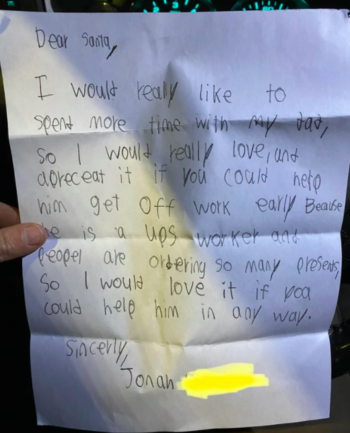 Dear Santa,
I would really like to
spend more time with my dad,
so I would really love, and
apreceat it if you could help
him get off work early Because
he is a ups worker and
peopel are ordering so many presents,
So I would love it if you
could help him in any way.
Sincerly,
Jonah